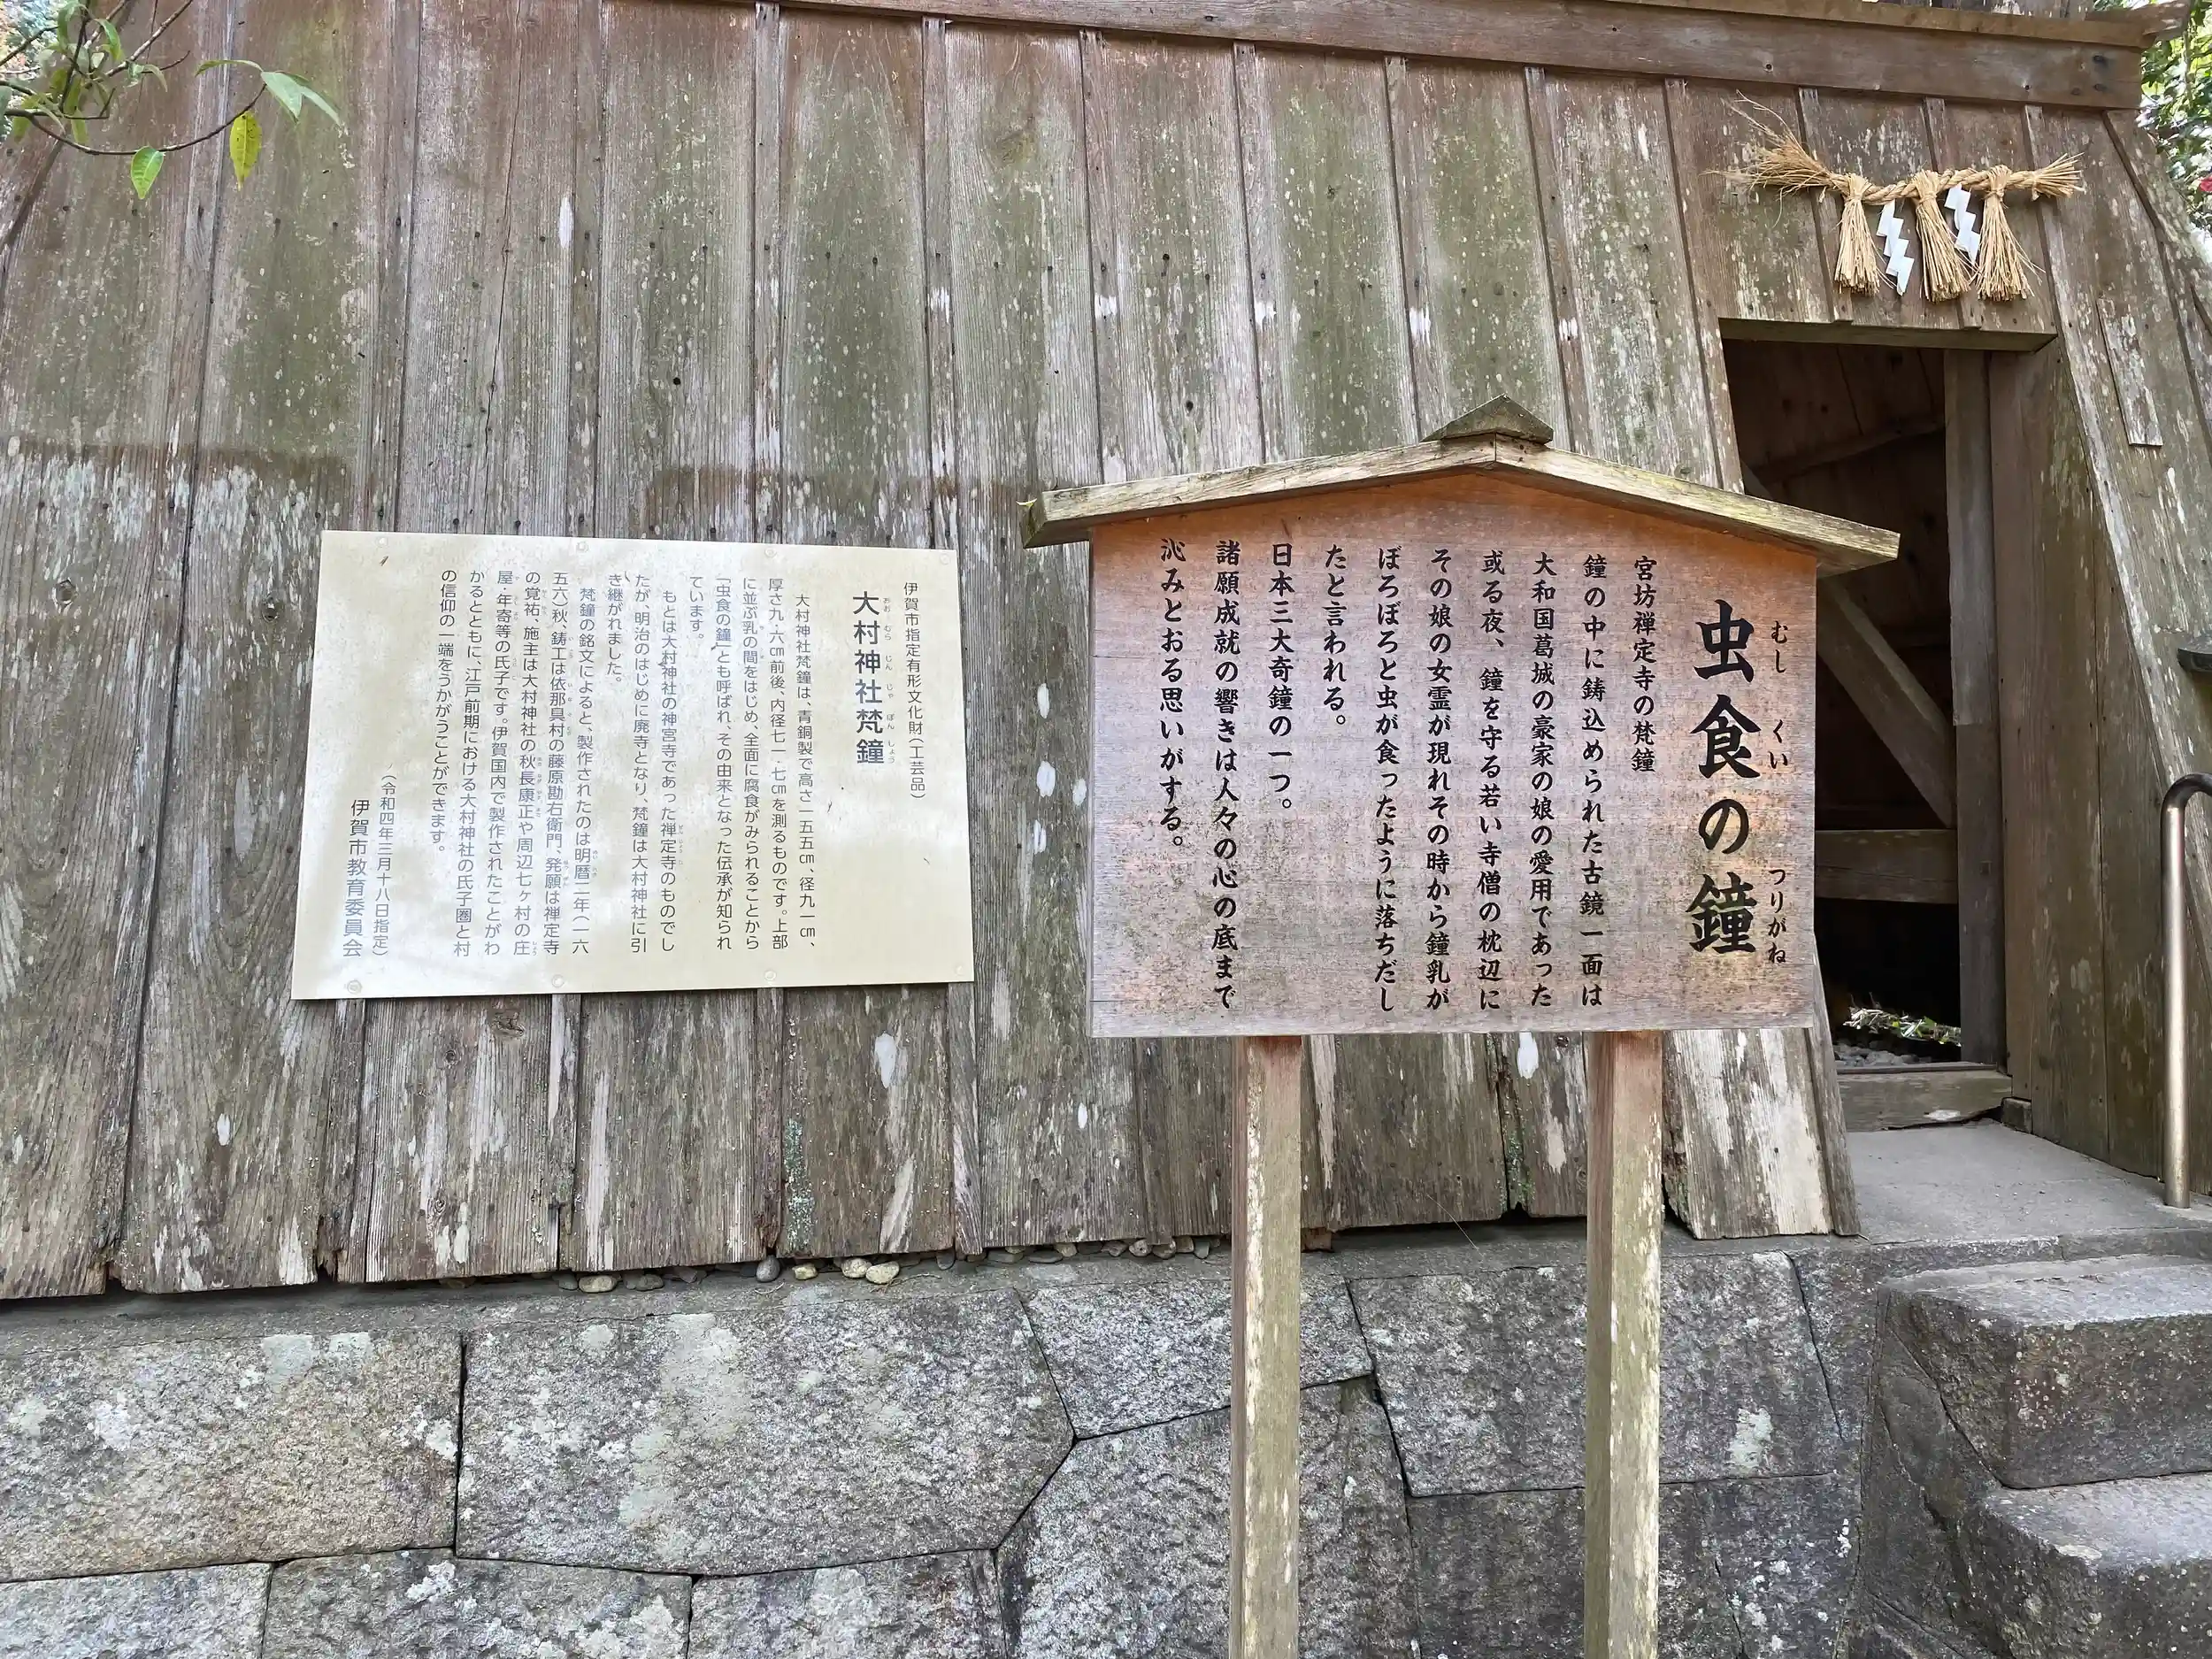 虫食の鐘
むし くい つりがね
宮坊禅定寺の梵鐘
鐘の中に鋳込められた古鏡一面は
大和国葛城の豪家の娘の愛用であった
或る夜、鐘を守る若い寺僧の枕辺に
その娘の女霊が現れその時から鐘乳が
ぼろぼろと虫が食ったように落ちだし
たと言われる。
日本三大奇鐘の一つ。
諸願成就の響きは人々の心の底まで
沁みとおる思いがする。
伊賀市指定有形文化財(工芸品)
大村神社梵鐘
おお むら じん じゃ ぼん しょう
大村神社梵鐘は、青銅製で高さ一五五㎝、径九一㎝、
厚さ九・六㎝前後、内径七一・七㎝を測るものです。上部
に並ぶ乳の間をはじめ、全面に腐食がみられることから
「虫食の鐘」とも呼ばれ、その由来となった伝承が知られ
ています。
もとは大村神社の神宮寺であった禅定寺のものでし
たが、明治のはじめに廃寺となり、梵鐘は大村神社に引
き継がれました。
梵鐘の銘文によると、製作されたのは明暦二年(一六
五六)秋、鋳工は依那具村の藤原勘右衛門、発願は禅定寺
の覚祐、施主は大村神社の秋長康正や周辺七ヶ村の庄
屋・年寄等の氏子です。伊賀国内で製作されたことがわ
かるとともに、江戸前期における大村神社の氏子圏と村
の信仰の一端をうかがうことができます。
(令和四年三月十八日指定)
伊賀市教育委員会